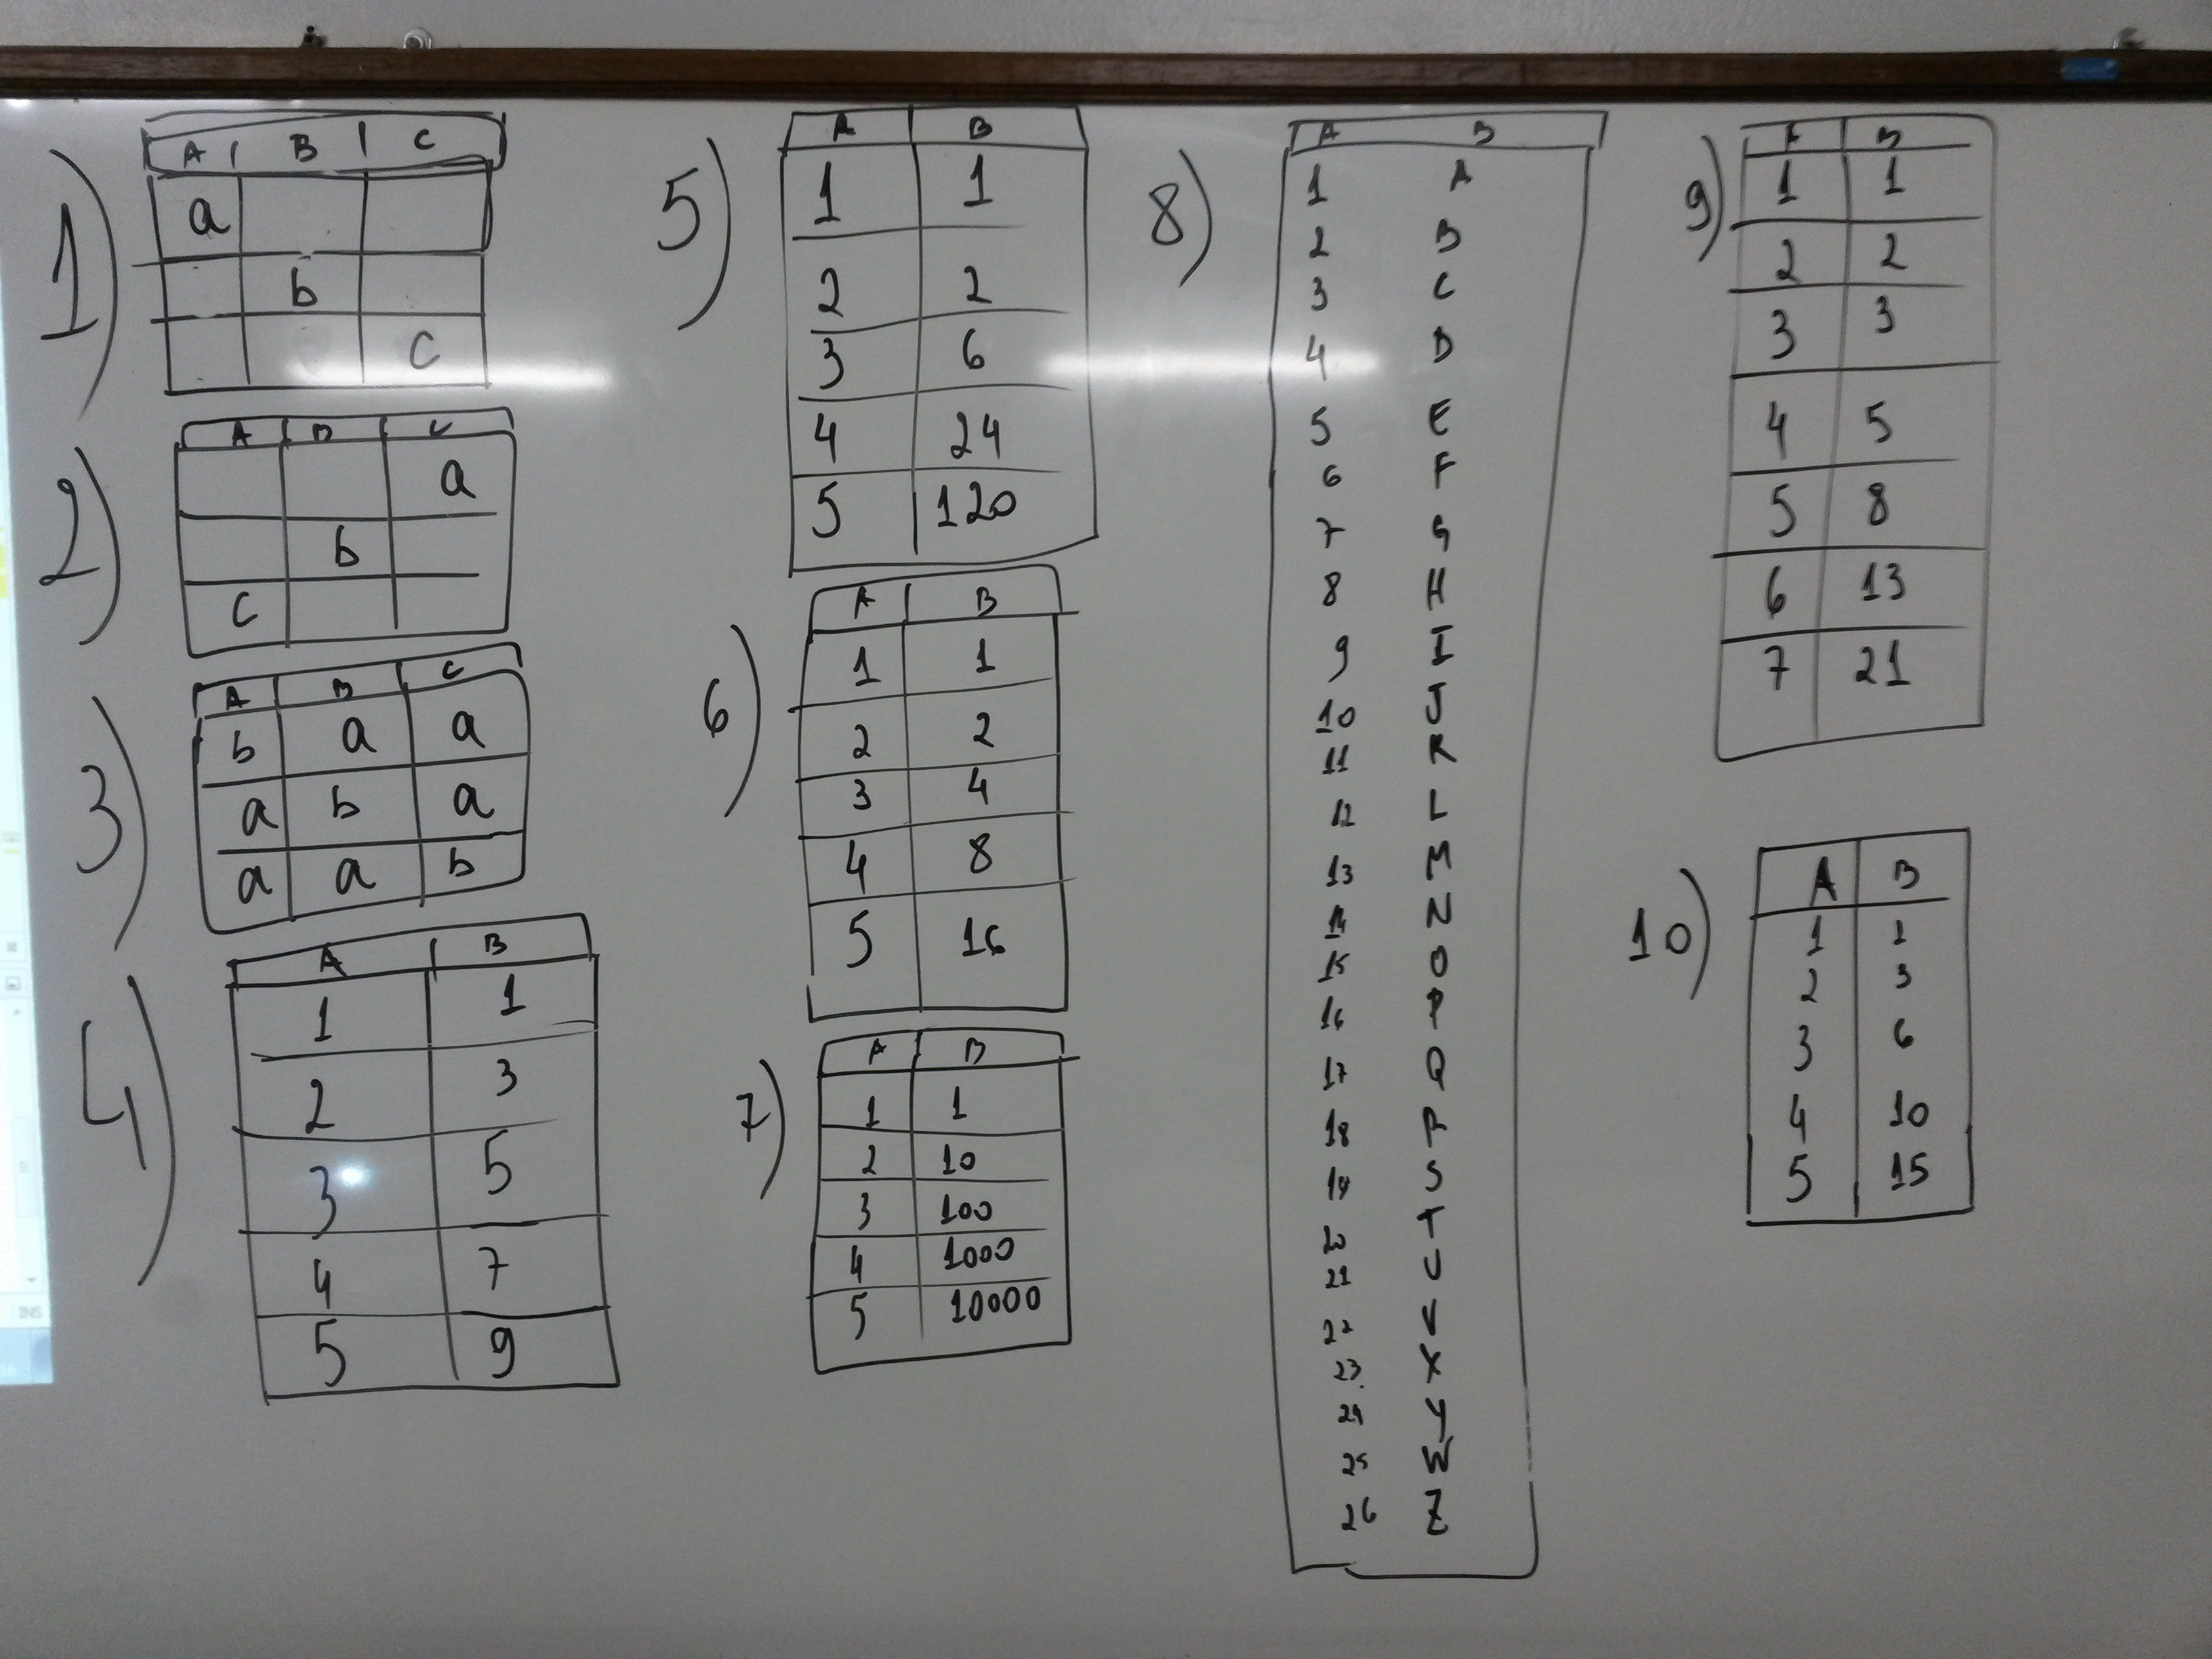 1)
A | B | C
a
b
c
2)
A B C
a
b
c
3)
A B C
b a a
a b a
a a b
4)
A B
1 1
2 3
3 5
4 7
5 9
5)
A B
1 1
2 2
3 6
4 24
5 120
6)
A B
1 1
2 2
3 4
4 8
5 16
7)
A B
1 1
2 10
3 100
4 1000
5 10000
8)
A B
1 A
2 B
3 C
4 D
5 E
6 F
7 G
8 H
9 I
10 J
11 K
12 L
13 M
14 N
15 O
16 P
17 Q
18 R
19 S
20 T
21 U
22 V
23 X
24 Y
25 W
26 Z
9)
A B
1 1
2 2
3 3
4 5
5 8
6 13
7 21
10)
A B
1 1
2 3
3 6
4 10
5 15
INS